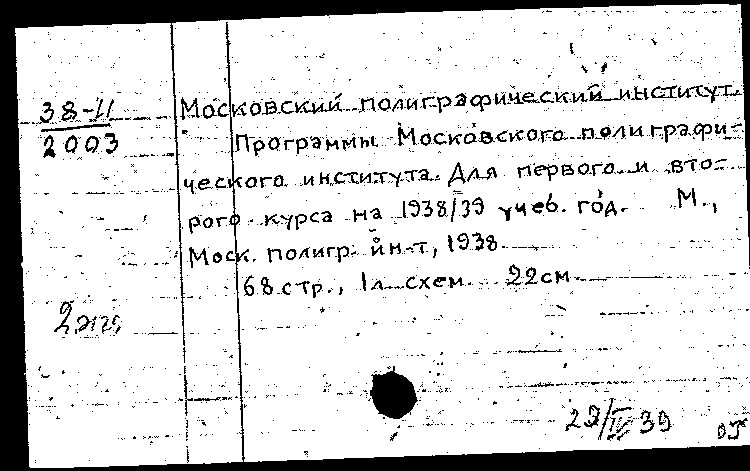 38-11
2003
Московский полиграфический институт.
Программы Московского полиграфи-
ческого института. Для первого и вто-
рого курса на 1938/39 учеб. год. М.,
Моск. полигр. ин-т, 1938
68 стр., 1 л. схем. 22 см.
2 экз
29/IV 39